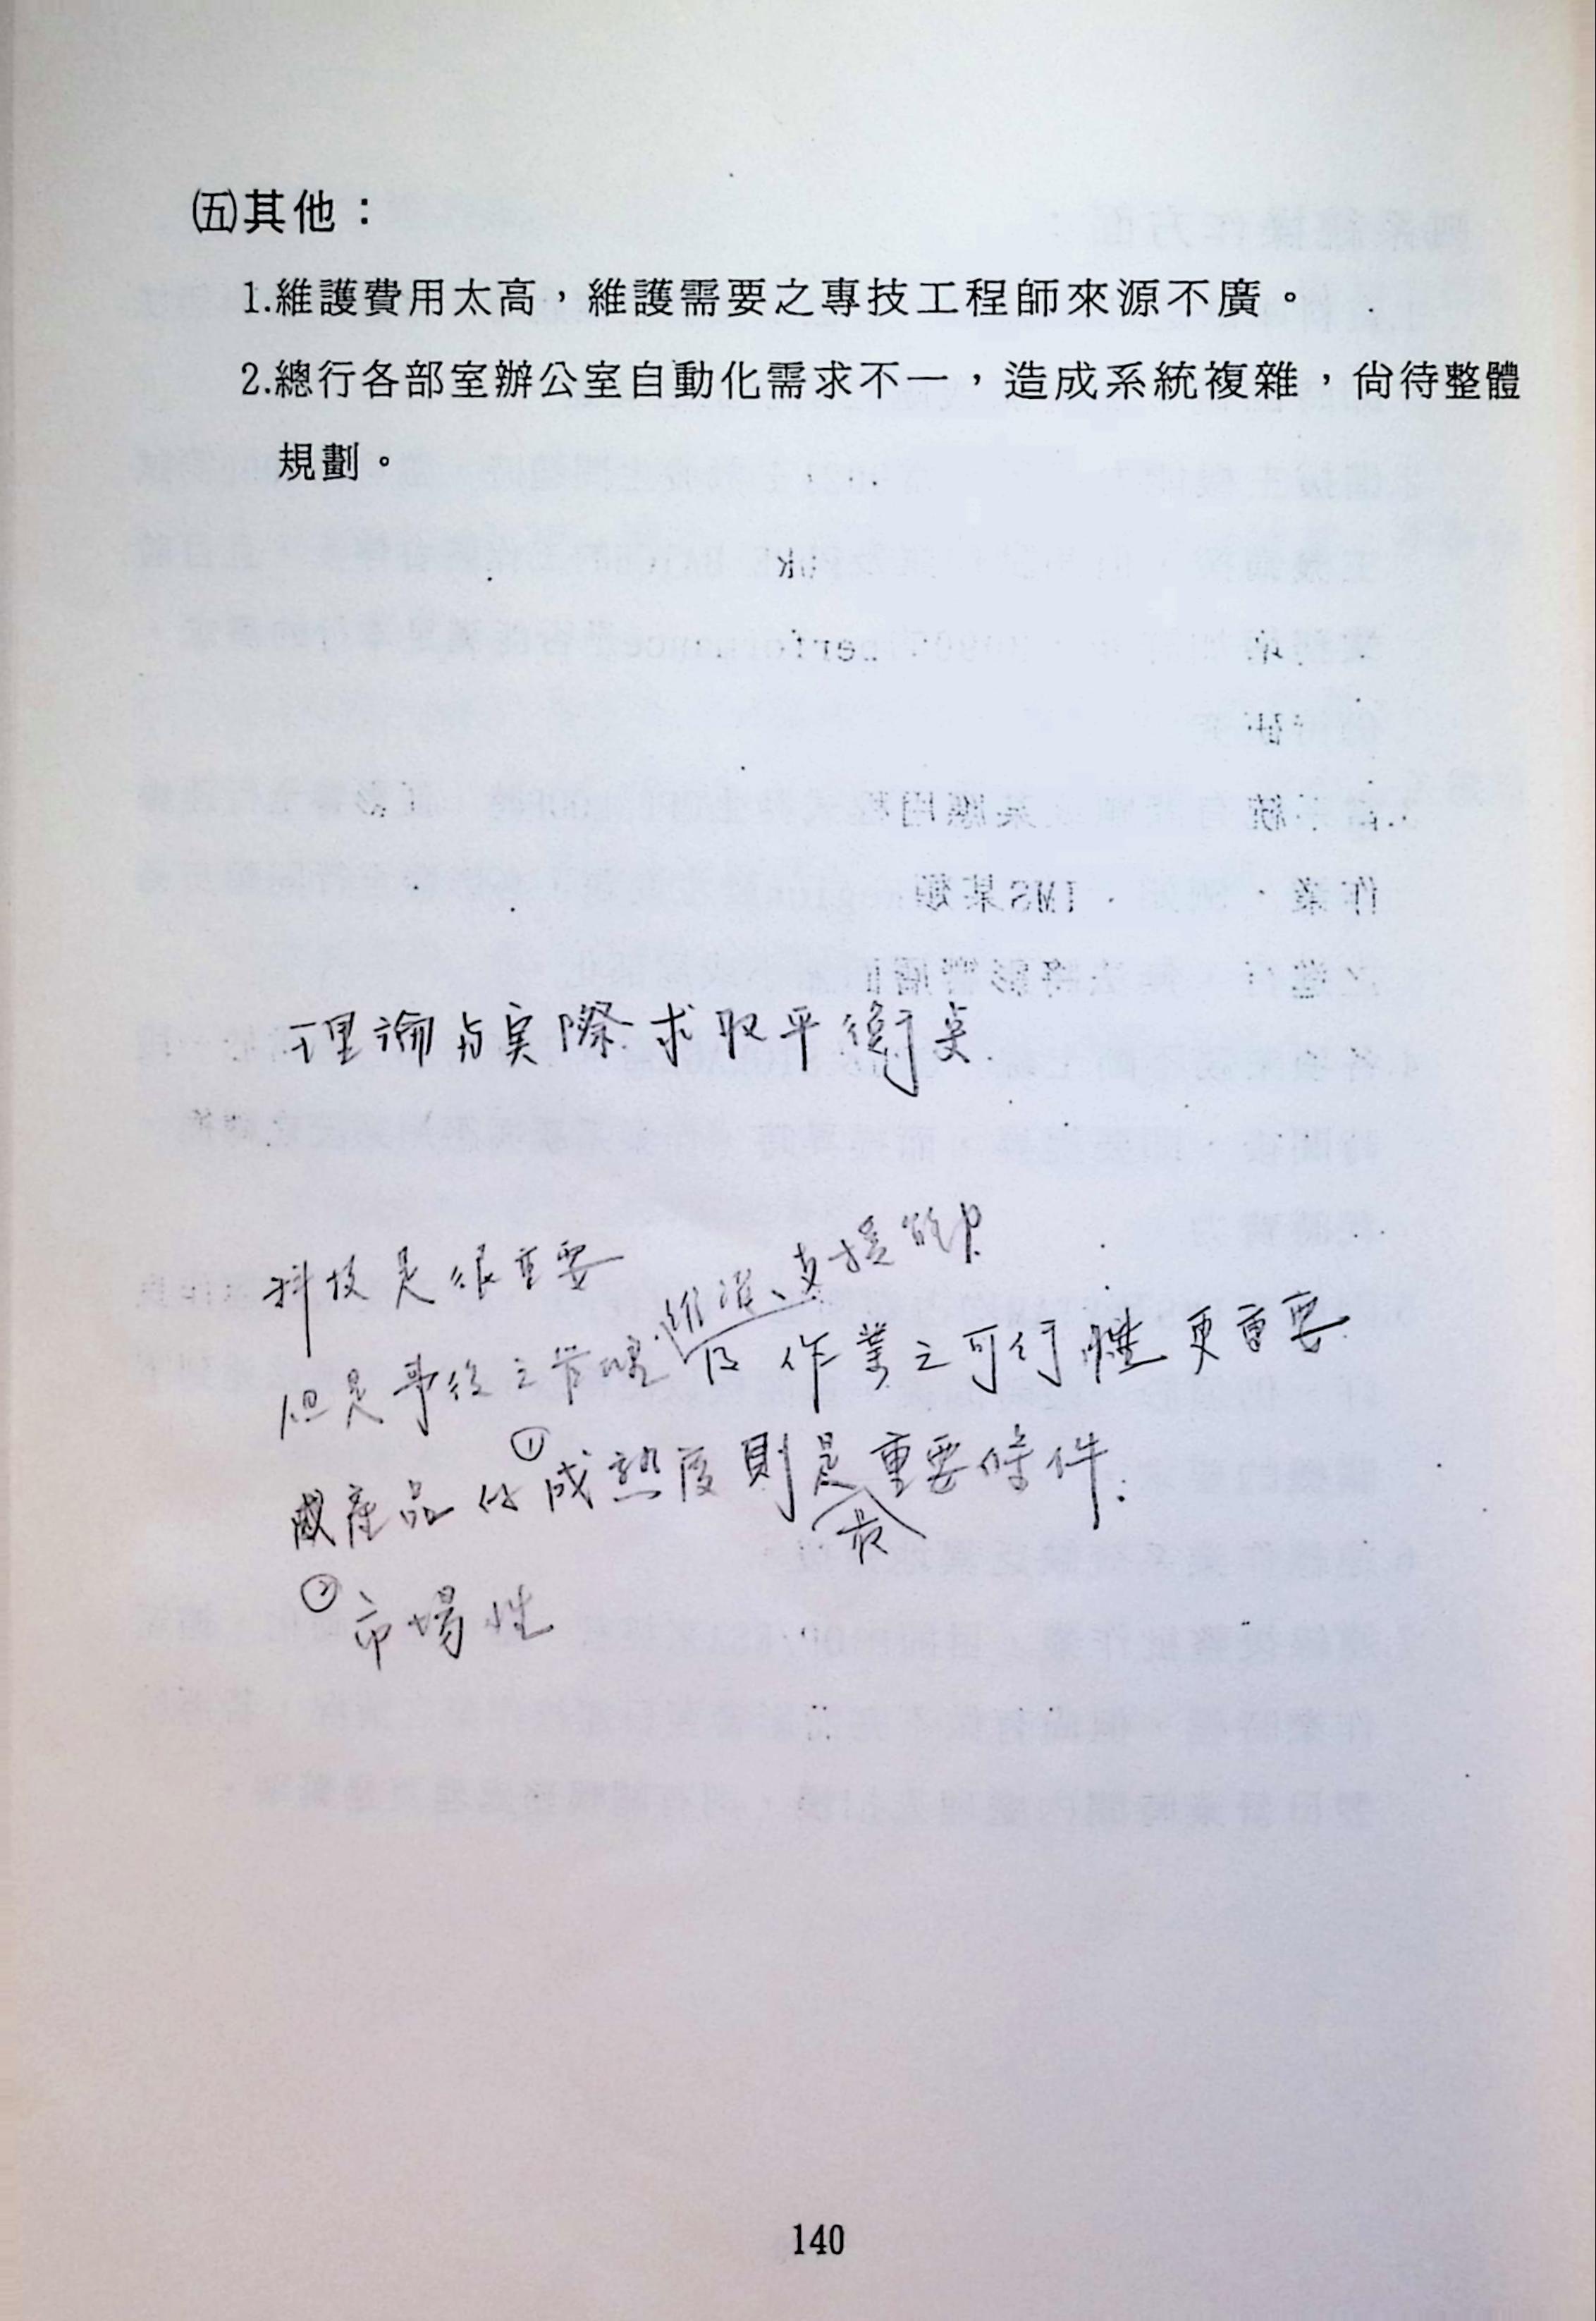 ㈤其他：
1.維護費用太高，維護需要之專技工程師來源不廣。
2.總行各部室辦公室自動化需求不一，造成系統複雜，尚待整體
規劃。
理論与実際求取平衡奌
科技是很重要
維護、支援能力
但是事後之管理及作業之可行性更重要
產品的①成熟度則是重要條件.
最
②市場性
140